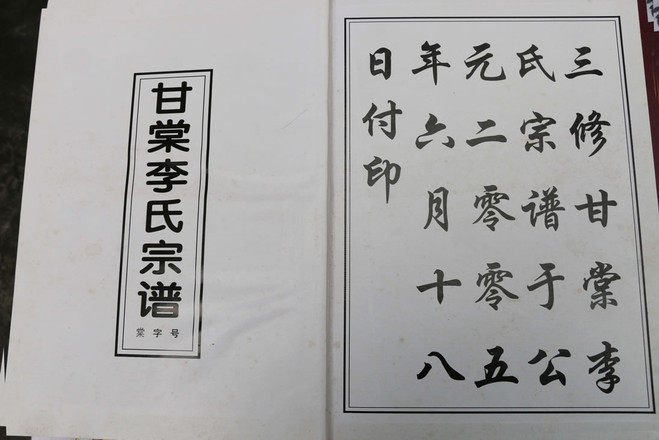 甘棠李氏宗谱
棠字号
三修甘棠李
氏宗谱于公
元二零零五
年六月十八
日付印